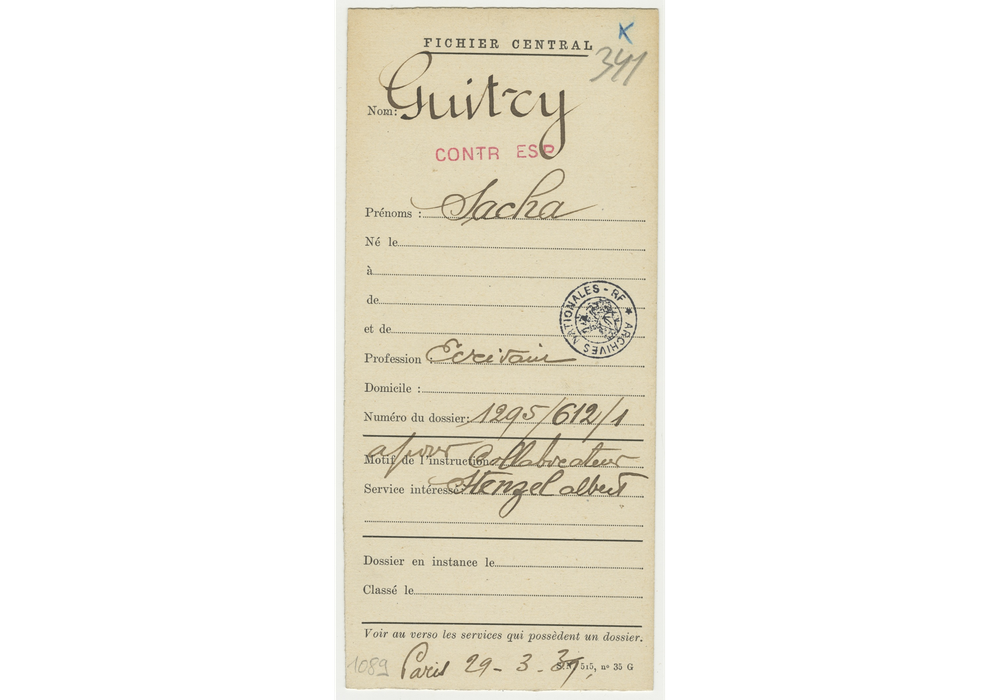 FICHIER CENTRAL
K
341
Nom: Guitry
CONTR ESP
Prénoms : Sacha
Né le
à
de
ARCHIVES NATIONALES - RF
et de
Profession : Ecrivain
Domicile :
Numéro du dossier: 1295/612/1
a pour Collaborateur
Motif de l'instruction
Service intéressé: Henzel albert
Dossier en instance le
Classé le
Voir au verso les services qui possèdent un dossier.
1089 Paris 29-3-37, 515, nº 35 G